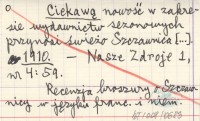 Ciekawą nowość w zakre-
sie wydawnictw sezonowych
przynosi świeżo Szczawnica [...].
1910. — Nasze Zdroje 1,
nr 4 : 59.
Recenzja broszury o Szczaw-
nicy w języku franc. i niem.